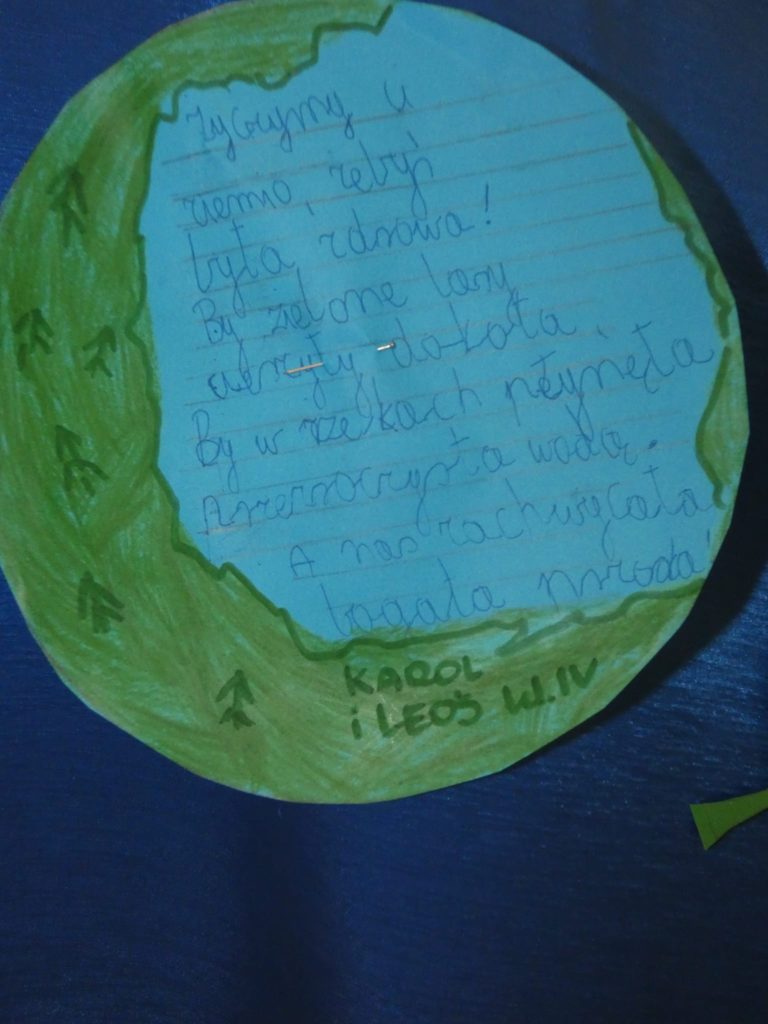 życzymy ci
ziemio, żebyś
była zdrowa!
By zielone lasy
szumiały dokoła.
By w rzekach płynęła
przezroczysta woda.
A nas zachwycała
bogata przyroda!
KAROL
i LEOŚ kl. IV